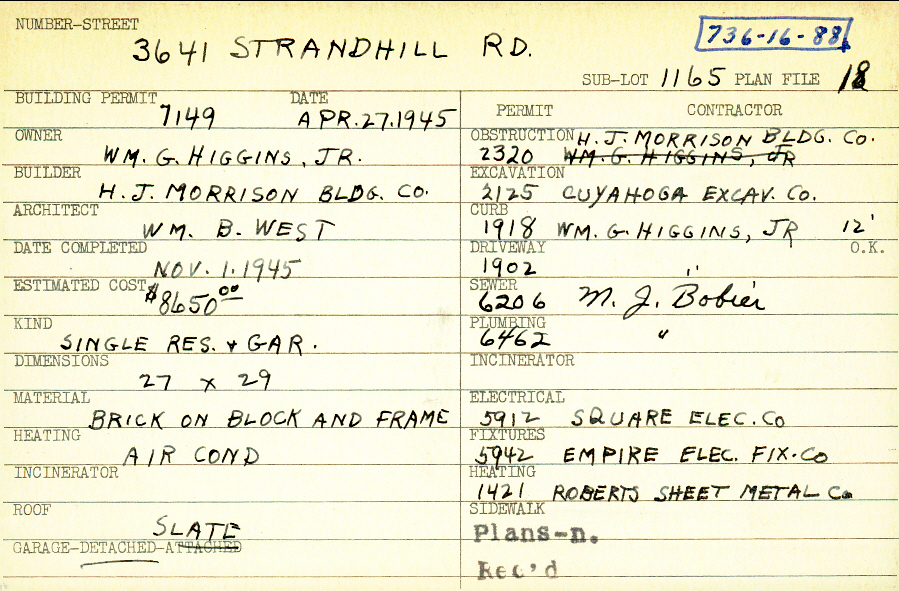 NUMBER-STREET
3641 STRANDHILL RD.
736-16-88
SUB-LOT 1165 PLAN FILE 18
BUILDING PERMIT 7149 DATE APR.27.1945
OWNER WM. G. HIGGINS, JR.
BUILDER H. J. MORRISON BLDG. CO.
ARCHITECT WM. B. WEST
DATE COMPLETED NOV. 1. 1945
ESTIMATED COST $8650.00
KIND SINGLE RES. & GAR.
DIMENSIONS 27 x 29
MATERIAL BRICK ON BLOCK AND FRAME
HEATING AIR COND
INCINERATOR
ROOF SLATE
GARAGE-DETACHED-ATTACHED
PERMIT CONTRACTOR
OBSTRUCTION H. J. MORRISON BLDG. CO.
2320 WM. G. HIGGINS, JR
EXCAVATION
2125 CUYAHOGA EXCAV. CO.
CURB
1918 WM. G. HIGGINS, JR 12'
DRIVEWAY O.K.
1902 "
SEWER
6206 M. J. Bobier
PLUMBING
6462 "
INCINERATOR
ELECTRICAL
5912 SQUARE ELEC. CO
FIXTURES
5942 EMPIRE ELEC. FIX. CO
HEATING
1421 ROBERTS SHEET METAL CO
SIDEWALK
Plans-n.
Rec'd